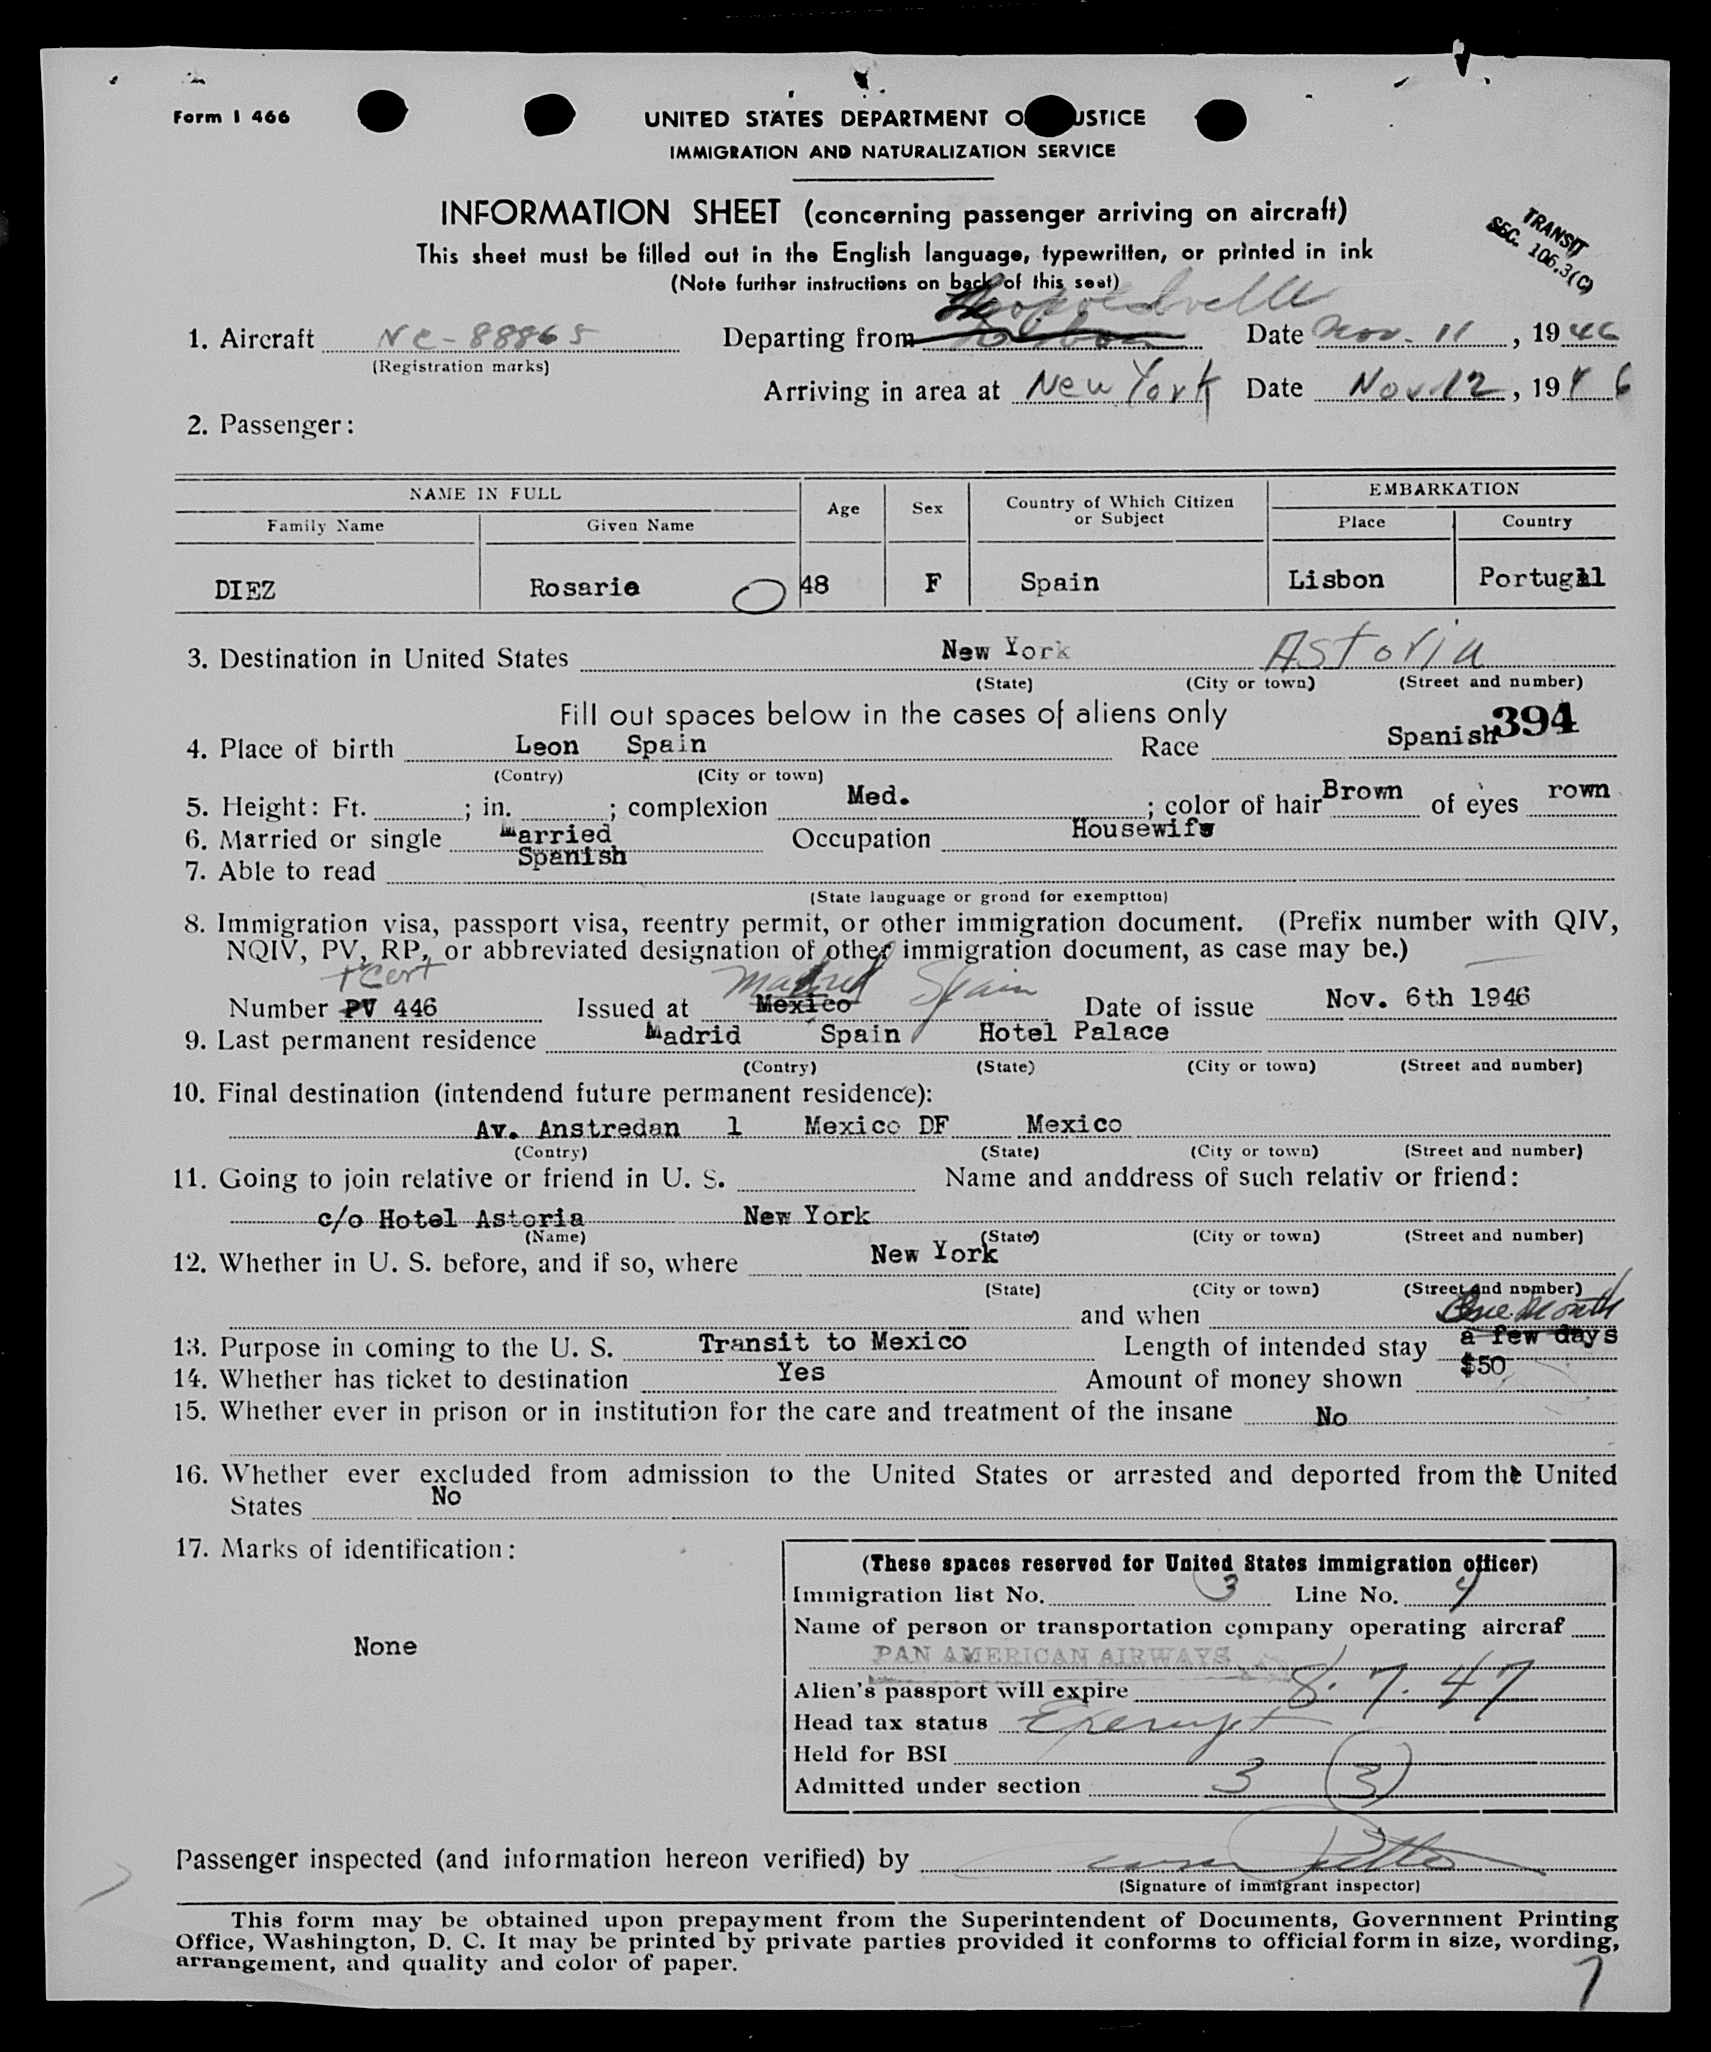 Form I 466
UNITED STATES DEPARTMENT O USTICE
IMMIGRATION AND NATURALIZATION SERVICE
INFORMATION SHEET (concerning passenger arriving on aircraft)
TRANSIT
SEC. 106.3(C)
This sheet must be filled out in the English language, typewritten, or printed in ink
(Note further instructions on back of this seet)
Leopoldville
1. Aircraft NC-88865 Departing from Lisbon Date Nov. 11, 1946
(Registration marks)
Arriving in area at New York Date Nov. 12, 1946
2. Passenger:
NAME IN FULL Age Sex Country of Which Citizen or Subject EMBARKATION
Family Name Given Name Place Country
DIEZ Rosarie 48 F Spain Lisbon Portugal
3. Destination in United States New York Astoria
(State) (City or town) (Street and number)
Fill out spaces below in the cases of aliens only
394
4. Place of birth Leon Spain Race Spanish
(Contry) (City or town)
5. Height: Ft. ; in. ; complexion Med. ; color of hair Brown of eyes rown
6. Married or single Married Occupation Housewife
7. Able to read Spanish
(State language or grond for exemptton)
8. Immigration visa, passport visa, reentry permit, or other immigration document. (Prefix number with QIV,
NQIV, PV, RP, or abbreviated designation of other immigration document, as case may be.)
Madrid Spain
Number PV 446 Issued at Mexico Date of issue Nov. 6th 1946
9. Last permanent residence Madrid Spain Hotel Palace
(Contry) (State) (City or town) (Street and number)
10. Final destination (intendend future permanent residence):
Av. Anstredan 1 Mexico DF Mexico
(Contry) (State) (City or town) (Street and number)
11. Going to join relative or friend in U. S. Name and anddress of such relativ or friend:
c/o Hotel Astoria New York
(Name) (State) (City or town) (Street and number)
12. Whether in U. S. before, and if so, where New York
(State) (City or town) (Street and number)
and when
One Month
13. Purpose in coming to the U. S. Transit to Mexico Length of intended stay a few days
14. Whether has ticket to destination Yes Amount of money shown $50
15. Whether ever in prison or in institution for the care and treatment of the insane No
16. Whether ever excluded from admission to the United States or arrested and deported from the United
States No
17. Marks of identification:
None
(These spaces reserved for United States immigration officer)
Immigration list No. 3 Line No. 4
Name of person or transportation company operating aircraf
PAN AMERICAN AIRWAYS
Alien's passport will expire 8. 7. 47
Head tax status Exempt
Held for BSI
Admitted under section 3 (3)
Passenger inspected (and information hereon verified) by
(Signature of immigrant inspector)
This form may be obtained upon prepayment from the Superintendent of Documents, Government Printing
Office, Washington, D. C. It may be printed by private parties provided it conforms to official form in size, wording,
arrangement, and quality and color of paper.
7